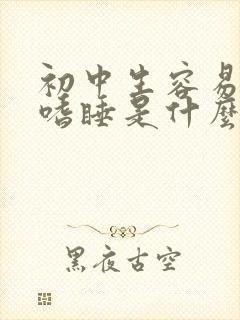 初中生容易
嗜睡是什麼
黑夜古空